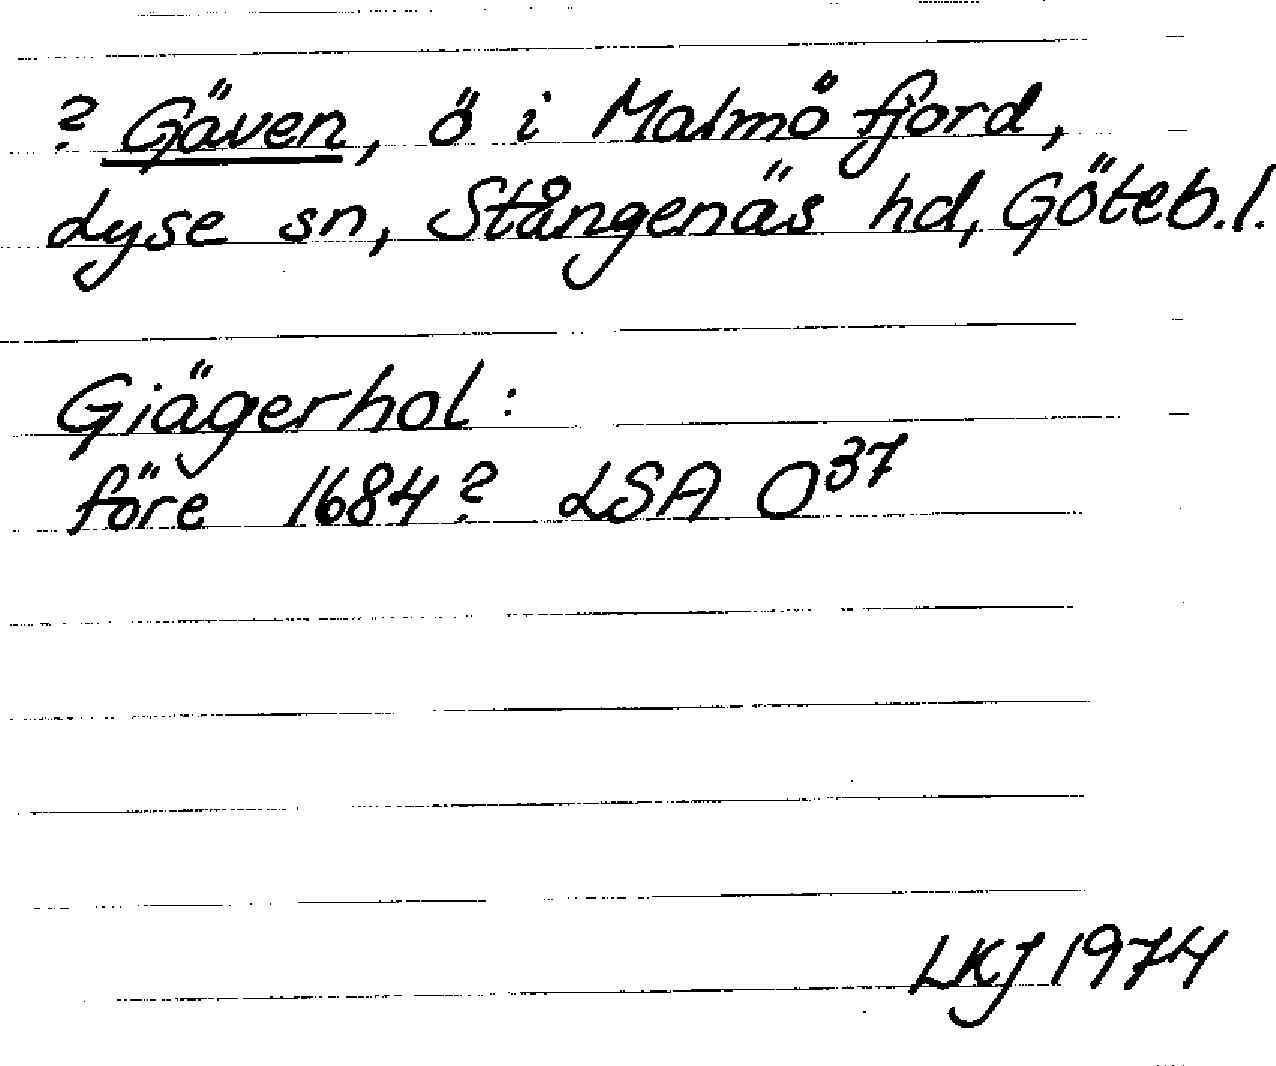 ? Gäven, ö i Malmö fjord,
Lyse sn, Stångenäs hd, Göteb. l.
Giägerhol:
före 1684? LSA O 37
LKJ 1974